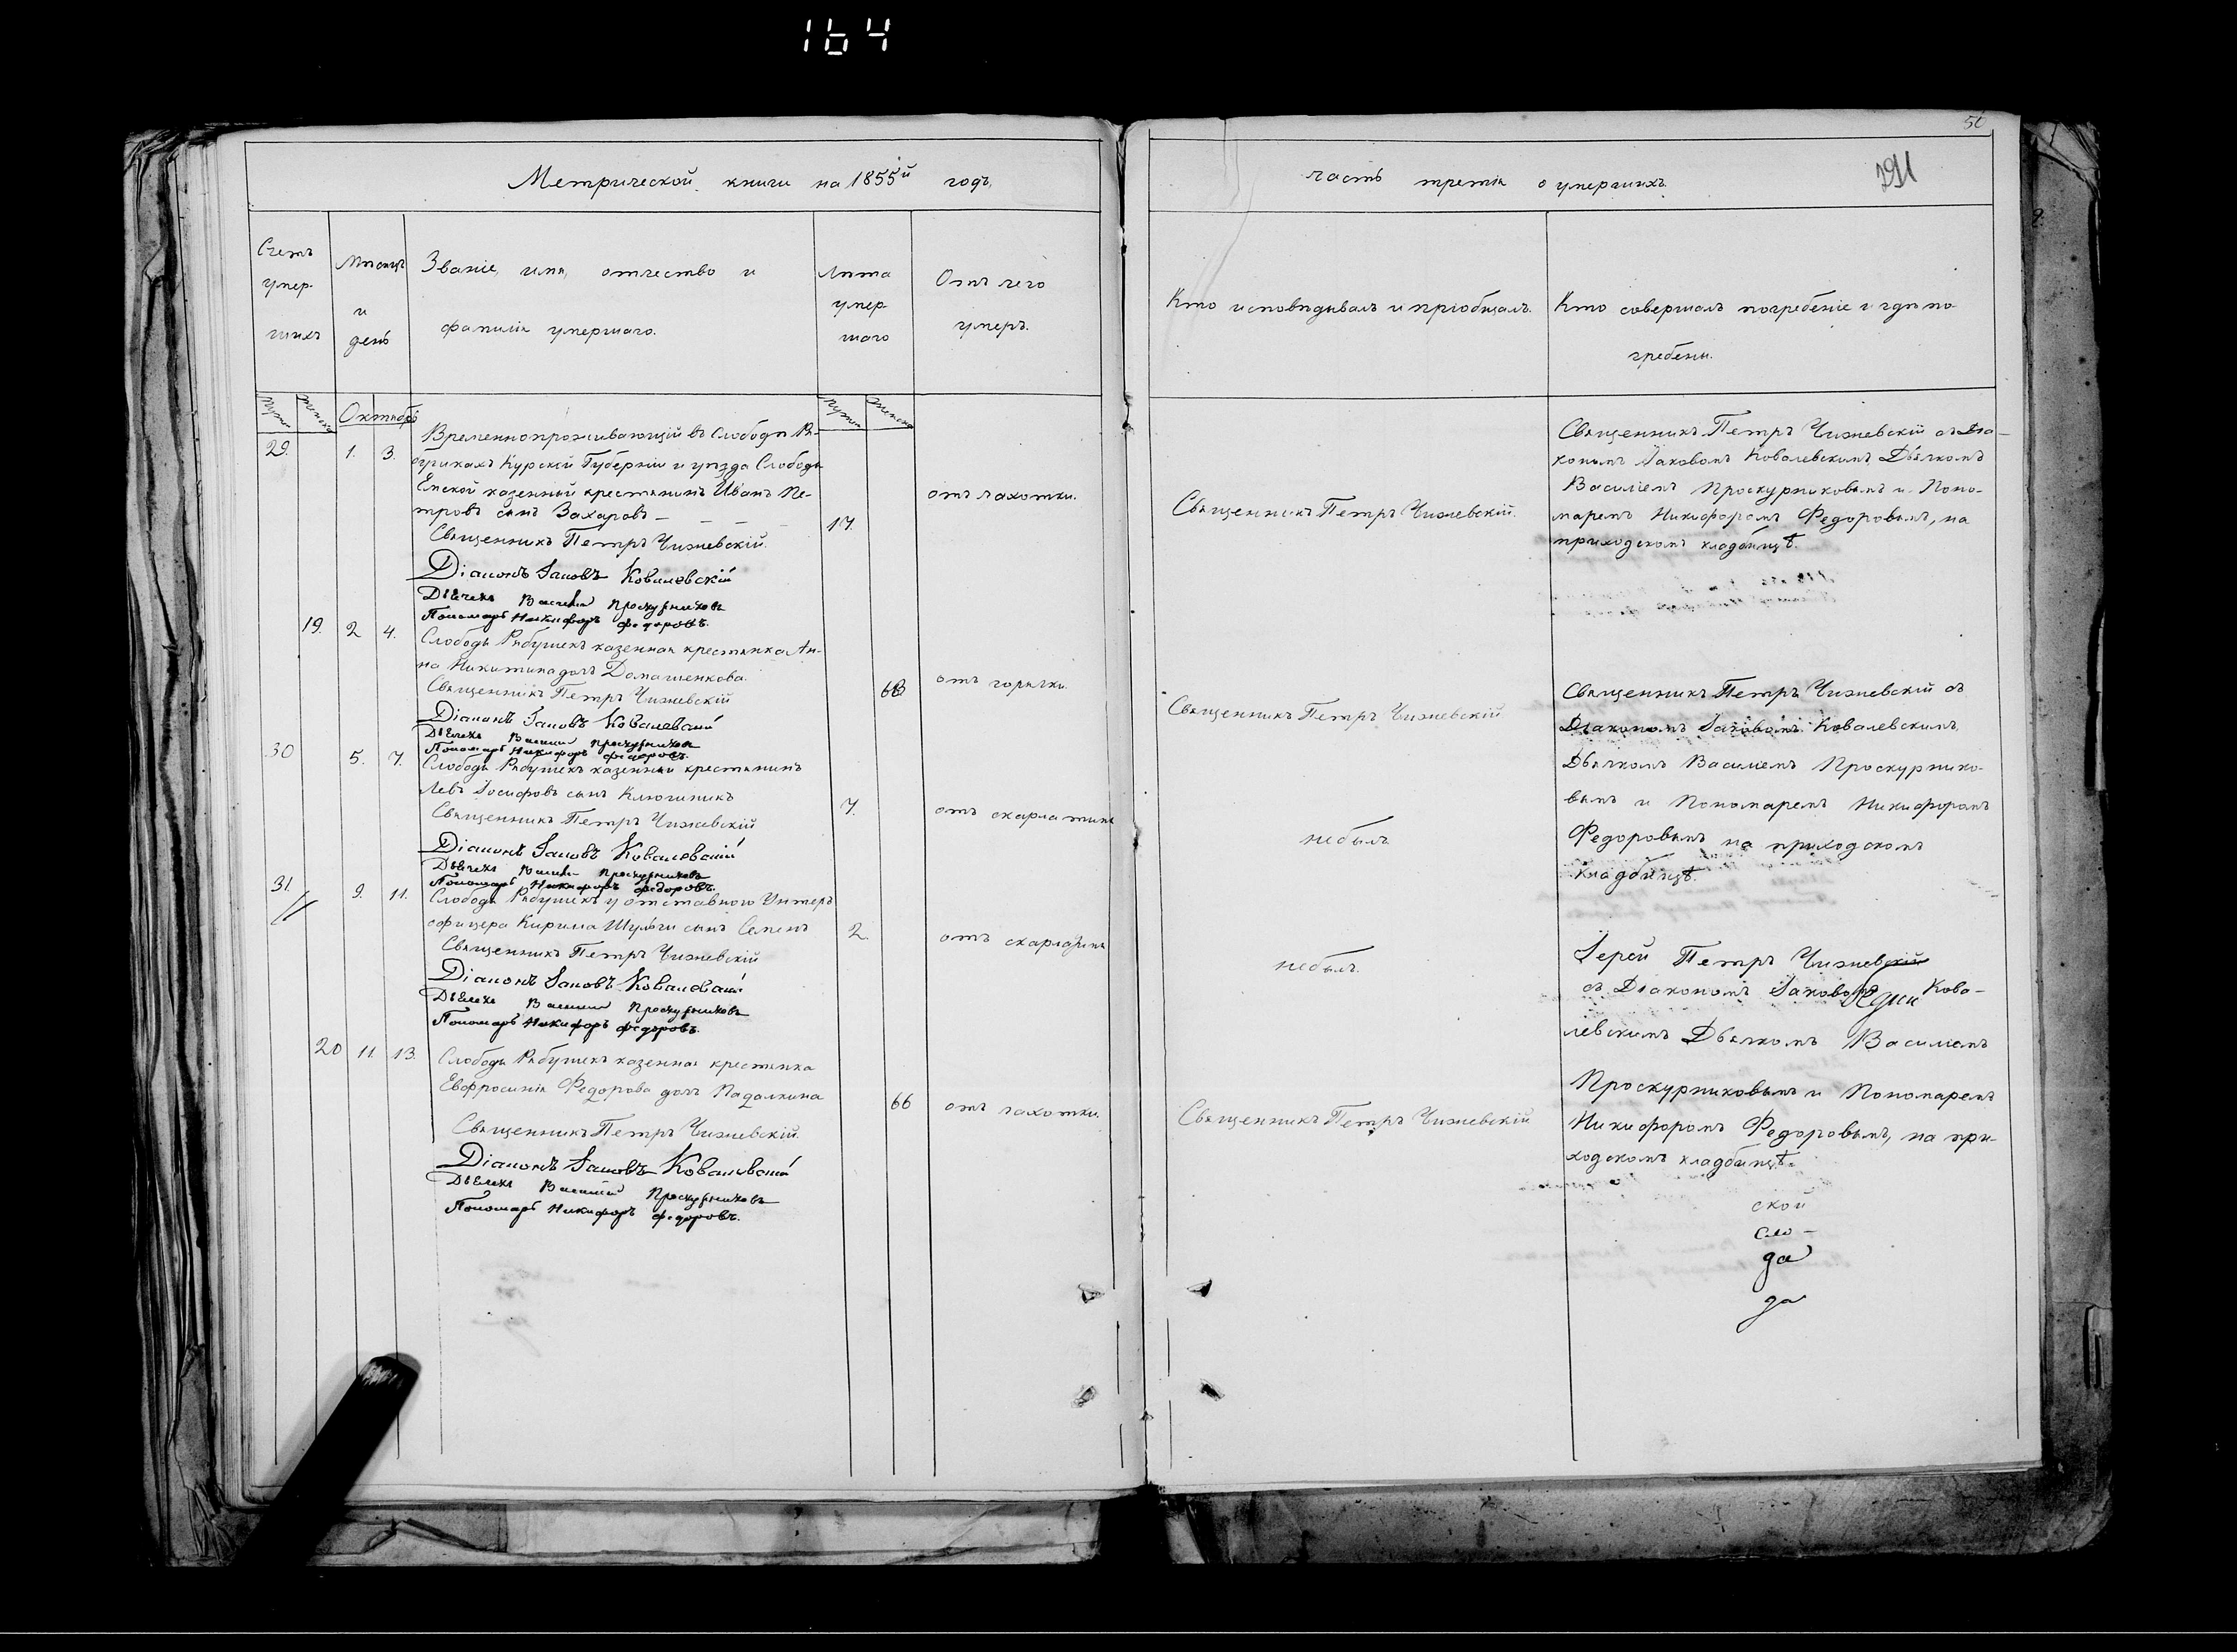 164
50
Метрической книги на 1855й годъ,
часть третія о умершихъ.
Счетъ умер-шихъ
Мѣсяцъ и день
Званіе, имя, отчество и фамилія умершаго.
Лѣта умер-шаго
Отъ чего умеръ.
Кто исповѣдывалъ и пріобщалъ.
Кто совершалъ погребеніе и гдѣ по-
гребены.
Октябрь
29. 1. 3.
Временнопроживающій въ Слободѣ Ря-
бушкахъ Курской Губерніи и уѣзда Слободы
Ямской казенный крестьянинъ Иванъ Пе-
тровъ сынъ Захаровъ —
17.
отъ чахотки.
Священникъ Петръ Чижевскій.
Священникъ Петръ Чижевскій.
Діаконъ Іаковъ Ковалевскій
Дьячекъ Василій Проскурниковъ
Пономарь Никифоръ Федоровъ.
Священникъ Петръ Чижевскій съ Діа-
кономъ Іаковомъ Ковалевскимъ, Дьячкомъ
Василіемъ Проскурниковымъ и Поно-
маремъ Никифоромъ Федоровымъ, на
приходскомъ кладбищѣ.
19. 2 4.
Слободы Рябушекъ казенная крестьянка Ан-
на Никитина дочь Домашенкова.
отъ горячки.
Священникъ Петръ Чижевскій
Священникъ Петръ Чижевскій
Діаконъ Іаковъ Ковалевскій
Дьячекъ Василій Проскурниковъ
Пономарь Никифоръ Федоровъ.
30 5. 7.
Слободы Рябушекъ казенный крестьянинъ
Левъ Іосифовъ сынъ Ключникъ
7.
отъ скарлатины
небылъ
Священникъ Петръ Чижевскій
Діаконъ Іаковъ Ковалевскій
Дьячекъ Василій Проскурниковъ
Пономарь Никифоръ Федоровъ.
Священникъ Петръ Чижевскій съ
Діакономъ Іаковомъ Ковалевскимъ,
Дьячкомъ Василіемъ Проскурнико-
вымъ и Пономаремъ Никифоромъ
Федоровымъ на приходскомъ
кладбищѣ.
31. 9. 11.
Слободы Рябушекъ у отставного Унтеръ
офицера Кирила Шульги сынъ Семенъ
2.
отъ скарлатины
небылъ.
Священникъ Петръ Чижевскій
Діаконъ Іаковъ Ковалевскій
Дьячекъ Василій Проскурниковъ
Пономарь Никифоръ Федоровъ.
20 11. 13.
Слободы Рябушекъ казенная крестьянка
Евфросинія Федорова дочь Падалкина
66
отъ чахотки.
Священникъ Петръ Чижевскій
Священникъ Петръ Чижевскій.
Діаконъ Іаковъ Ковалевскій
Дьячекъ Василій Проскурниковъ
Пономарь Никифоръ Федоровъ.
Іерей Петръ Чижевскій
съ Діакономъ Іаковомъ Кова-
левскимъ Дьячкомъ Василіемъ
Проскурниковымъ и Пономаремъ
Никифоромъ Федоровымъ, на при-
ходскомъ кладбищѣ.
ской
сло-
да
да